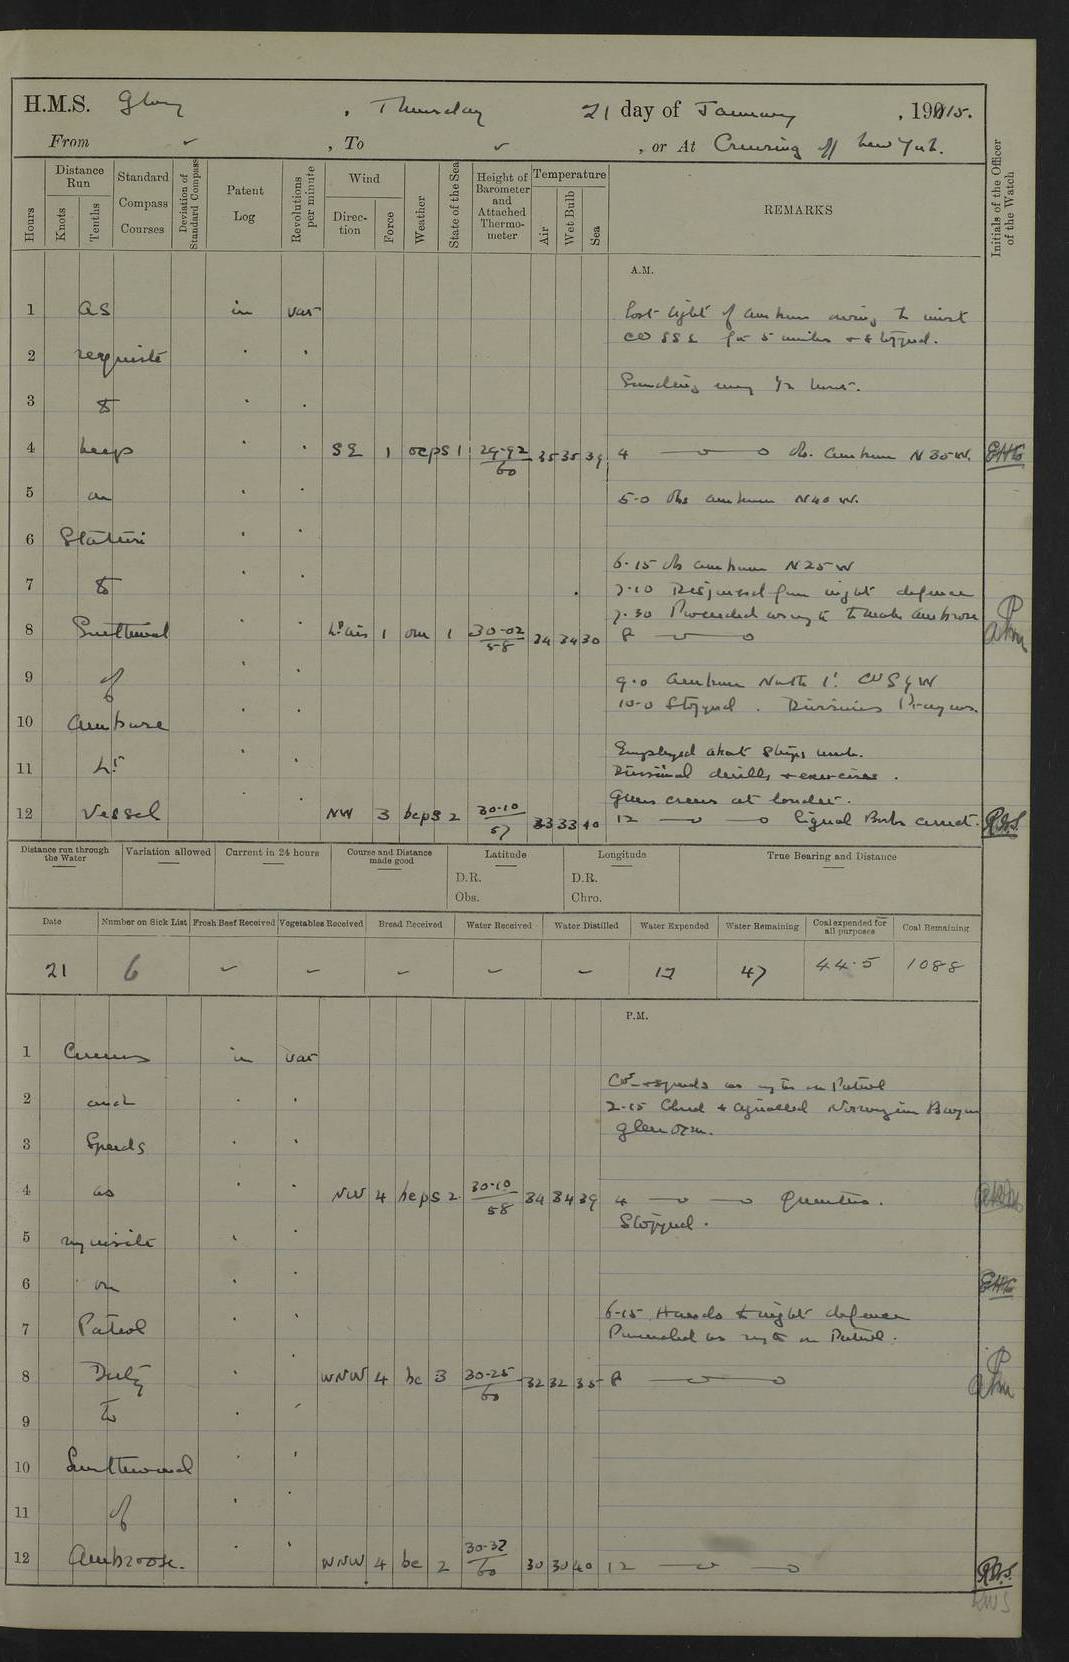 H.M.S. Glory, Thursday 21 day of January, 1915.
From ✓, To ✓, or At Cruising off New York.
Hours
Distance Run
Knots
Tenths
Standard Compass Courses
Deviation of Standard Compass
Patent Log
Revolutions per minute
Wind
Direction
Force
Weather
State of the Sea
Height of Barometer and Attached Thermometer
Temperature
Air
Wet Bulb
Sea
REMARKS
Initials of the Officer of the Watch
A.M.
1 as in var Lost light of Ambrose owing to mist
Co SSE for 5 miles + stopped.
2 requisite
Sounding every 1/2 hour.
3 to
4 keep SE 1 ocps 1 29-92/60 35 35 39 4 obs. Ambrose N 30 W. EHG
5 on 5-0 Obs Ambrose N 40 W.
6 Station
6-15 Ob Ambrose N 25 W
7 to 7-10 Dispersed from night defence
7-30 Proceeded as req to make Ambrose
8 Southward Lt airs 1 om 1 30-02/58 34 34 30 8
9 of 9-0 Ambrose North 1'. Co S 9 W
10-0 Stopped. Divisions Prayers.
10 Ambrose
Employed about Ships work.
11 Lt Divisional drills + exercises.
Guns crews at loader.
12 Vessel NW 3 bcps 2 30-10/57 33 33 40 12 Signal Books correct. R.W.S.
Distance run through the Water
Variation allowed
Current in 24 hours
Course and Distance made good
Latitude
D.R.
Obs.
Longitude
D.R.
Chro.
True Bearing and Distance
Date
Number on Sick List
Fresh Beef Received
Vegetables Received
Bread Received
Water Received
Water Distilled
Water Expended
Water Remaining
Coal expended for all purposes
Coal Remaining
21 6 – – – – – 17 47 44.5 1088
P.M.
1 Courses in var
Cos + speeds as req to on Patrol
2 and 2-15 Closed + signalled Norwegian Barque
Glenorm.
3 Speeds
4 as NW 4 bcps 2 30-10/58 34 34 39 4 Quarters.
Stopped.
5 requisite
6 on EHG
6-15 Hands to night defence
7 Patrol Proceeded as req to on Patrol.
8 Duty WNW 4 bc 3 30-25/60 32 32 35 8
9 to
10 Southward
11 of
12 Ambrose. WNW 4 bc 2 30-32/60 30 30 40 12 R.W.S.
RWS